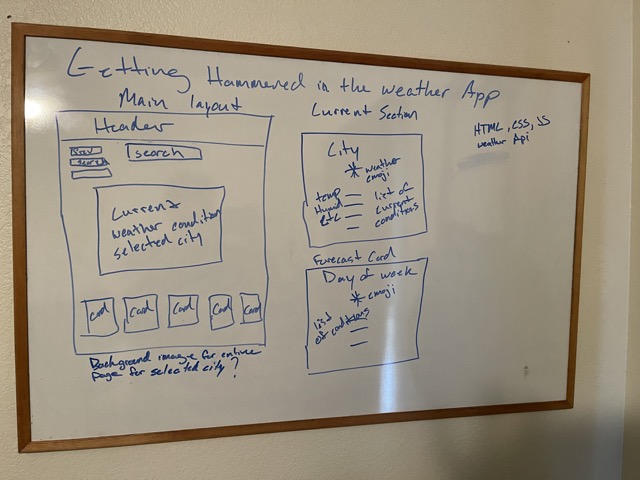 Getting Hammered in the weather App
Main layout
Header
Prev
search
search
Current
weather condition
selected city
Card
Card
Card
Card
Card
Background image for entire
page for selected city?
Current Section
City
weather
emoji
temp
Humid
Etc
list of
current
conditions
Forecast Card
Day of week
emoji
list
of conditions
HTML, CSS, JS
weather Api